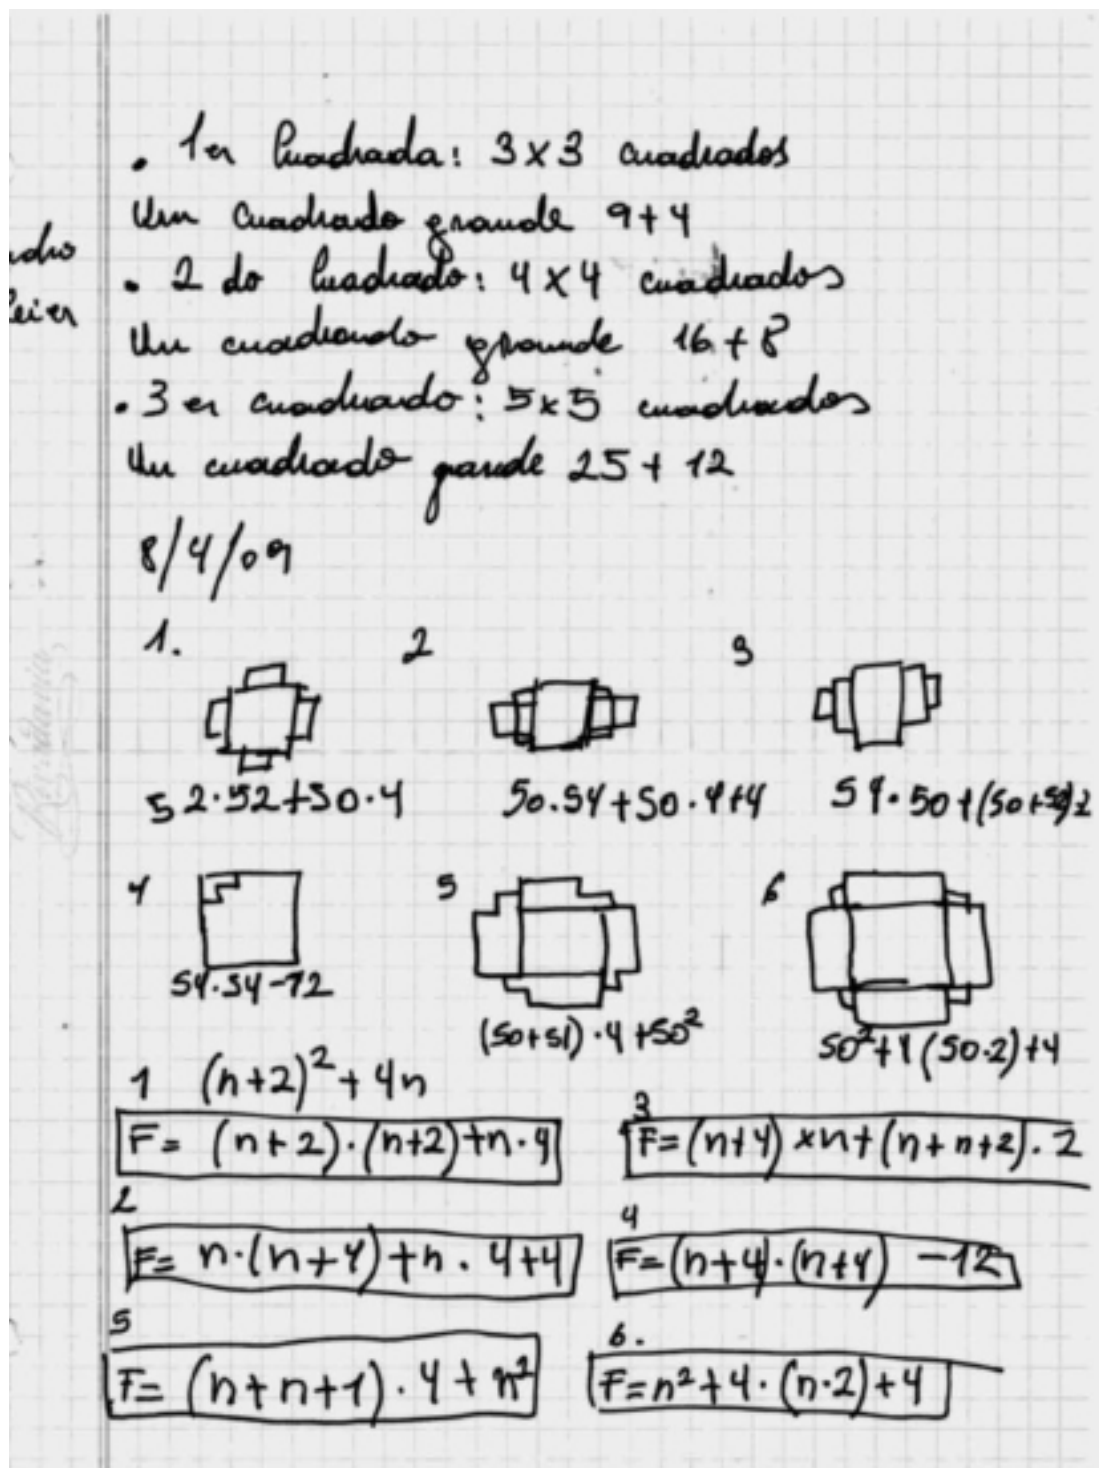 . 1er Cuadrada: 3x3 cuadrados
Un cuadrado grande 9+4
. 2 do Cuadrado: 4x4 cuadrados
Un cuadrando grande 16+8
. 3 er cuadrado: 5x5 cuadrados
Un cuadrado grande 25+12
8/4/09
1. 2 3
52·52+50·4 50·54+50·4+4 54·50+(50+52)2
4 5 6
54·54-12
(50+51)·4+50² 50²+4(50·2)+4
1 (n+2)²+4n
F= (n+2)·(n+2)+n·4
3
F=(n+4)xn+(n+n+2)·2
2
F= n·(n+4)+n·4+4
4
F=(n+4)·(n+4) -12
5
F= (n+n+1)·4+n²
6.
F=n²+4·(n·2)+4